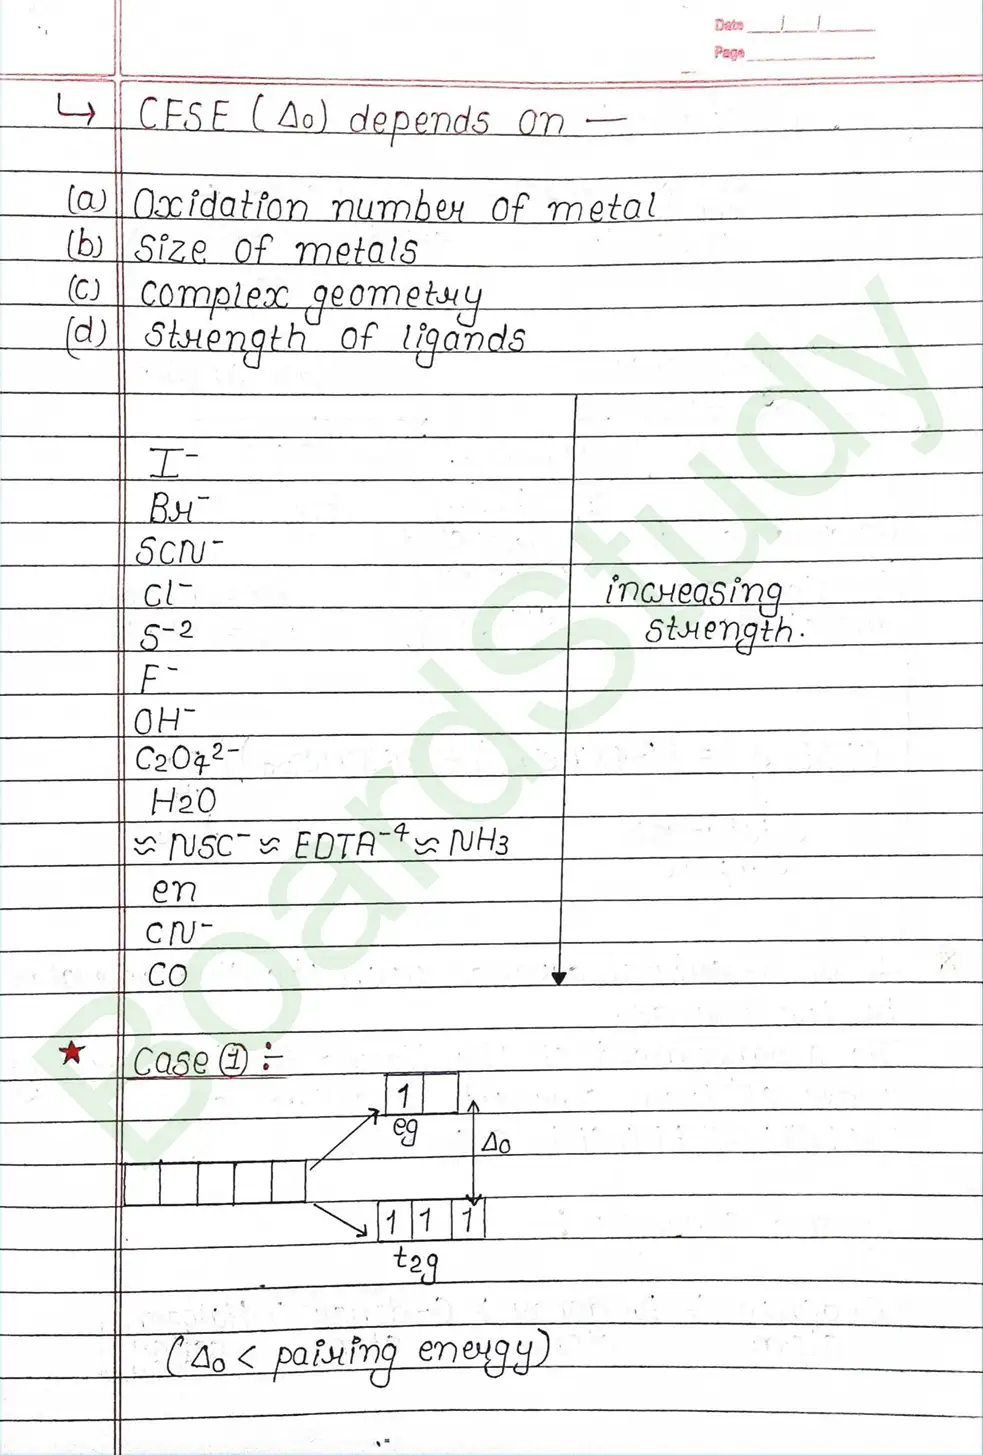 Date __/__/__
Page ______
↳ CFSE (Δo) depends on —
(a) Oxidation number of metal
(b) Size of metals
(c) Complex geometry
(d) Strength of ligands
I⁻
Br⁻
SCN⁻
Cl⁻
S⁻²
F⁻
OH⁻
C₂O₄²⁻
H₂O
≈ NSC⁻ ≈ EDTA⁻⁴ ≈ NH₃
en
CN⁻
CO
increasing
strength.
★ Case ① :-
1
eg
Δo
1 1 1
t₂g
(Δo < pairing energy)
BoardStudy